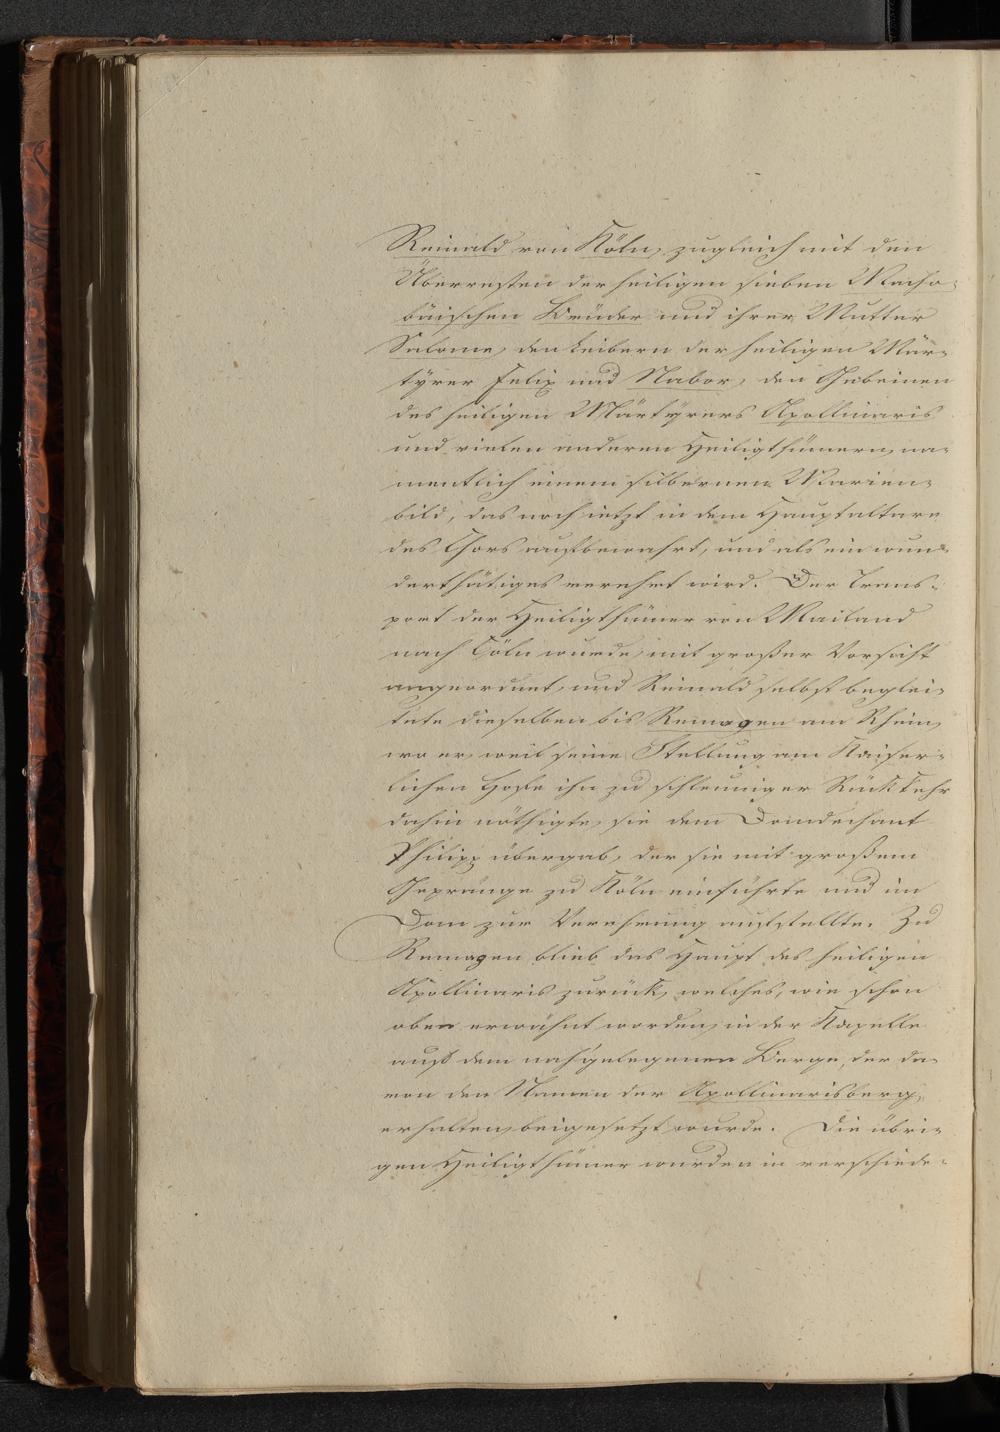 Reinald von Köln, zugleich mit den
Überresten der heiligen sieben Macha-
bäischen Brüder und ihrer Mutter
Salome, den Leibern der heiligen Mär-
tyrer Felix und Nabor, den Gebeinen
des heiligen Märtyrers Apollinaris
und vielen anderen Heiligthümern, na-
mentlich einem silbernen Marien-
bild, das noch jetzt in dem Hauptaltare
des Chors aufbewahrt, und als ein wun-
derthätiges verehrt wird. Der Trans-
port der Heiligthümer von Mailand
nach Cöln wurde mit großer Vorsicht
angeordnet, und Reinald selbst beglei-
tete dieselben bis Remagen am Rhein,
wo er, weil seine Stellung am Kaiser-
lichen Hofe ihn zu schleuniger Rückkehr
dahin nöthigte, sie dem Domdechant
Philipp übergab, der sie mit großem
Gepränge zu Köln einführte und im
Dom zur Verehrung aufstellte. Zu
Remagen blieb das Haupt des heiligen
Apollinaris zurück, welches, wie schon
oben erwähnt worden, in der Kapelle
auf dem nahgelegenen Berge, der da-
von den Namen der Apollinarisberg,
erhalten, beigesetzt wurde. Die übri-
gen Heiligthümer wurden in verschiede-